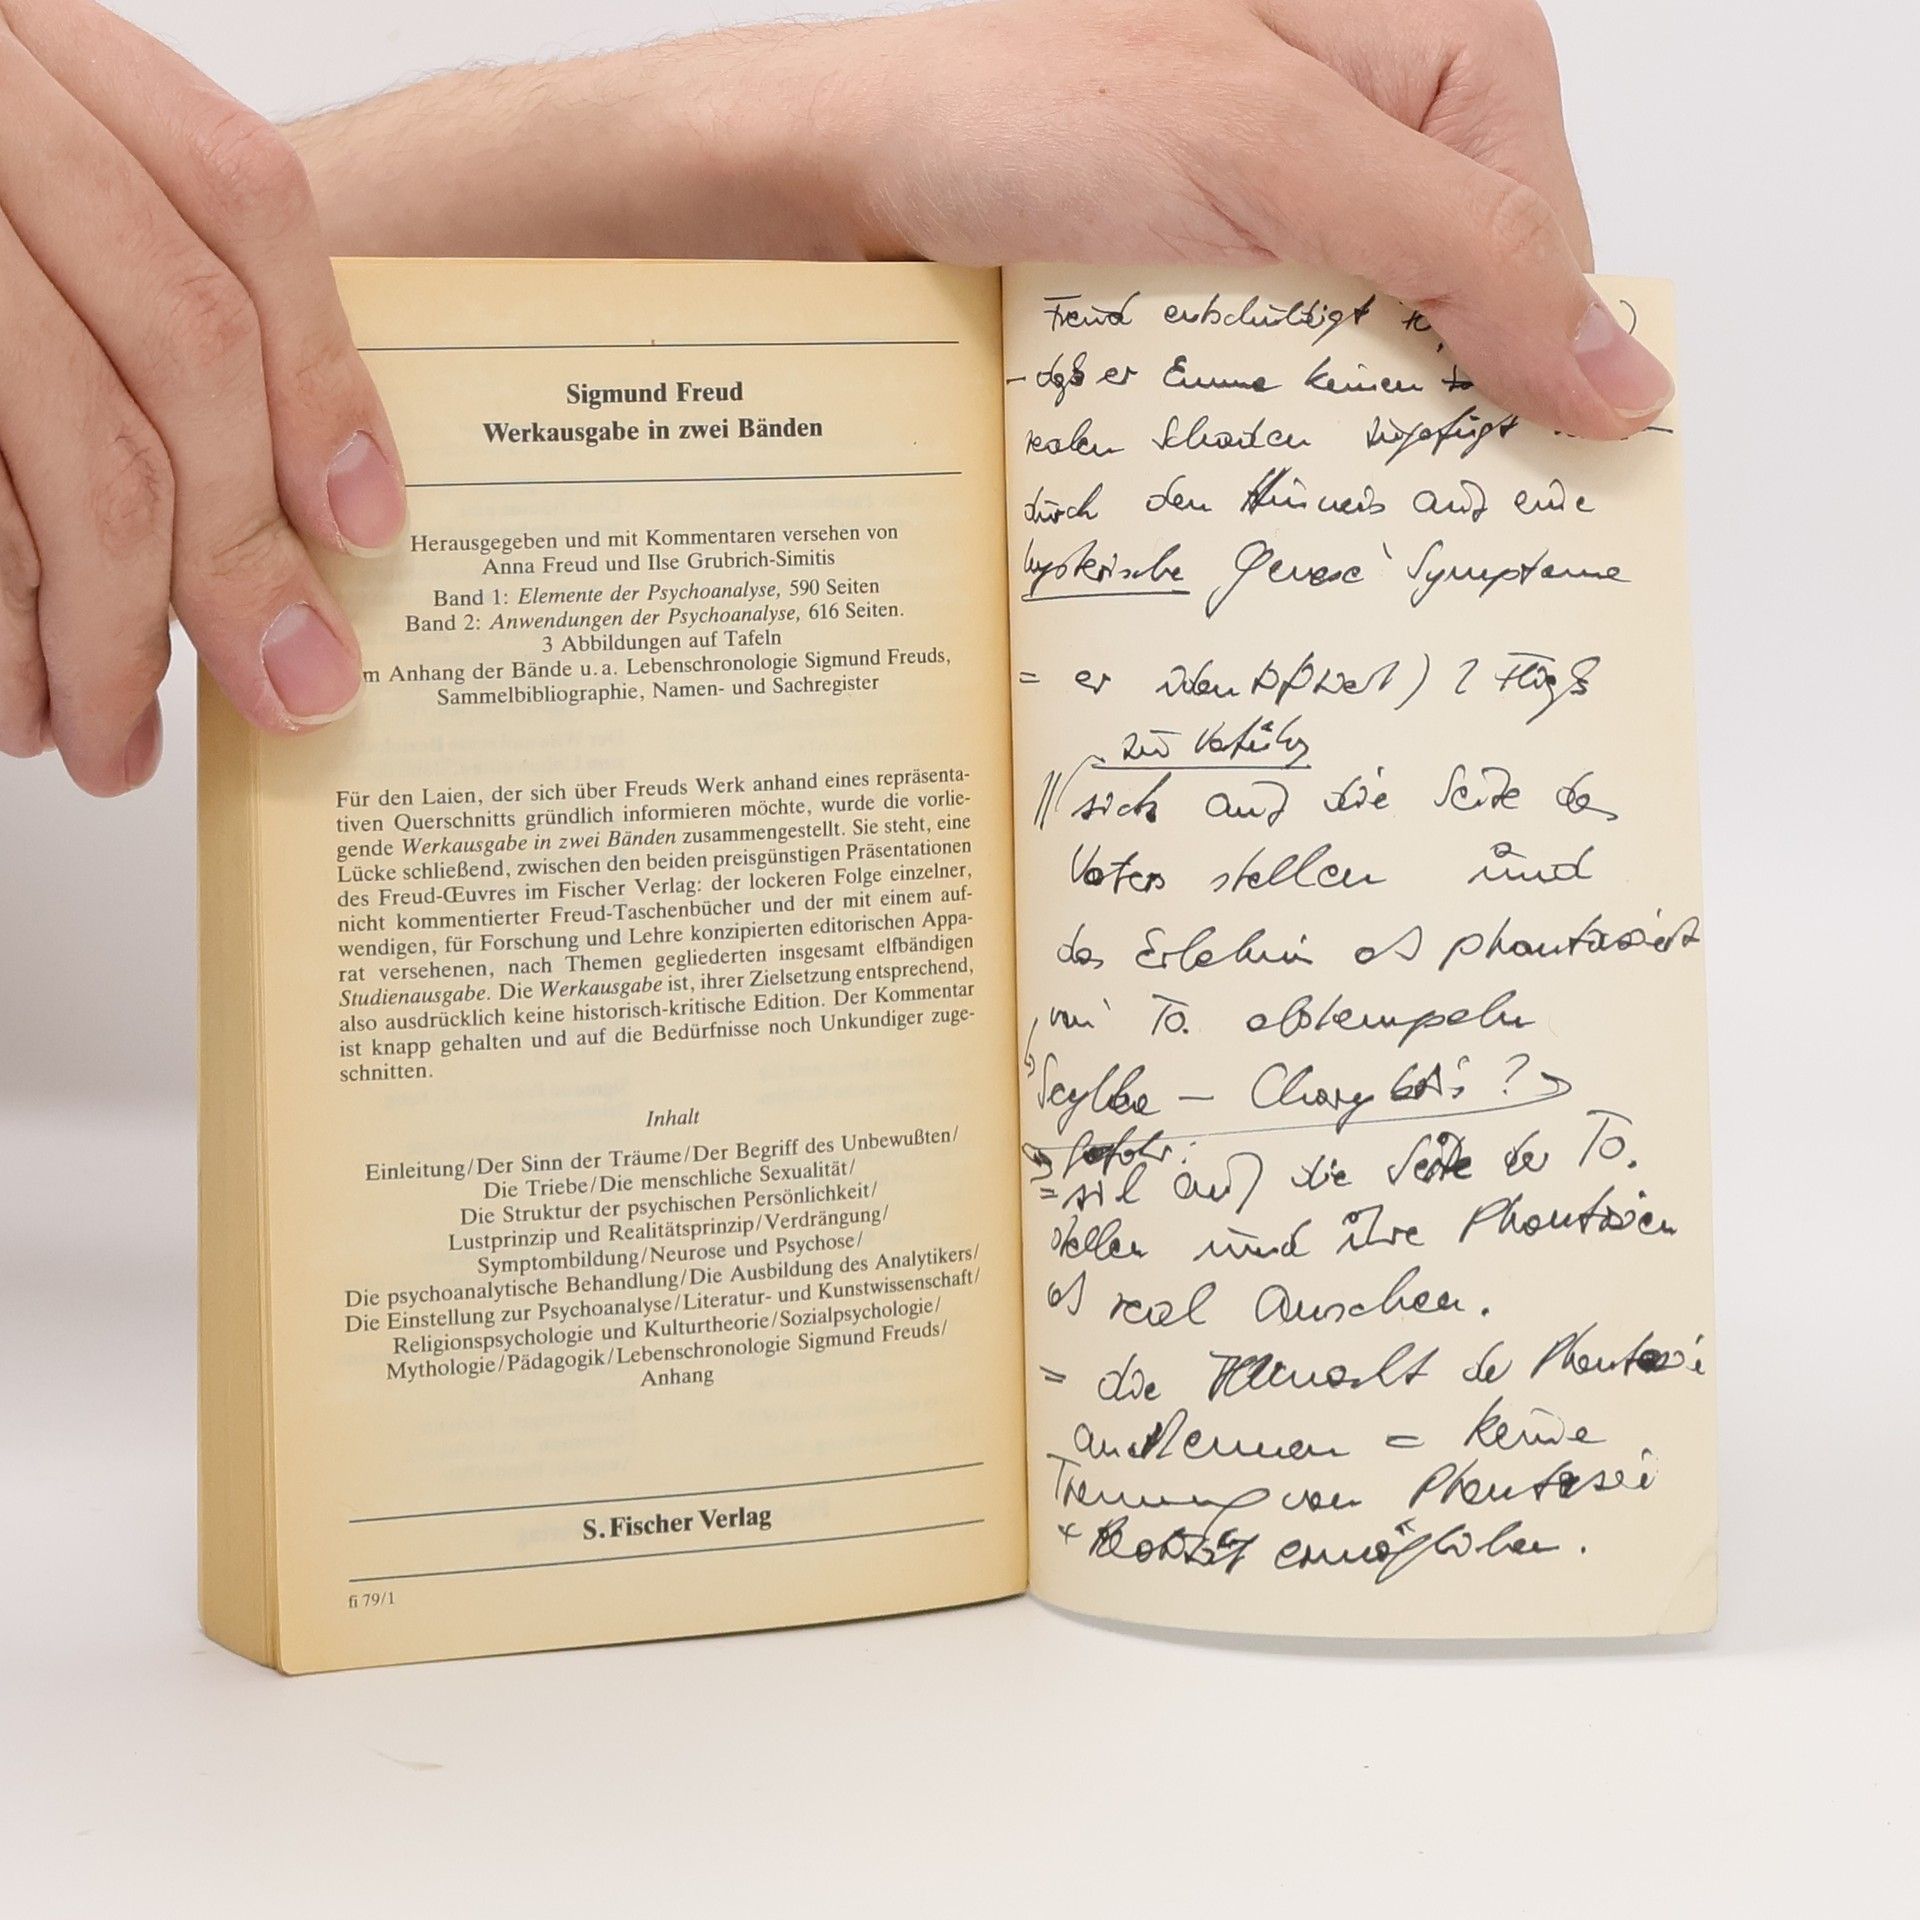 Sigmund Freud
Werkausgabe in zwei Bänden
Herausgegeben und mit Kommentaren versehen von
Anna Freud und Ilse Grubrich-Simitis
Band 1: Elemente der Psychoanalyse, 590 Seiten
Band 2: Anwendungen der Psychoanalyse, 616 Seiten.
3 Abbildungen auf Tafeln
m Anhang der Bände u. a. Lebenschronologie Sigmund Freuds,
Sammelbibliographie, Namen- und Sachregister
Für den Laien, der sich über Freuds Werk anhand eines repräsenta-
tiven Querschnitts gründlich informieren möchte, wurde die vorlie-
gende Werkausgabe in zwei Bänden zusammengestellt. Sie steht, eine
Lücke schließend, zwischen den beiden preisgünstigen Präsentationen
des Freud-Œuvres im Fischer Verlag: der lockeren Folge einzelner,
nicht kommentierter Freud-Taschenbücher und der mit einem auf-
wendigen, für Forschung und Lehre konzipierten editorischen Appa-
rat versehenen, nach Themen gegliederten insgesamt elfbändigen
Studienausgabe. Die Werkausgabe ist, ihrer Zielsetzung entsprechend,
also ausdrücklich keine historisch-kritische Edition. Der Kommentar
ist knapp gehalten und auf die Bedürfnisse noch Unkundiger zuge-
schnitten.
Inhalt
Einleitung/Der Sinn der Träume/Der Begriff des Unbewußten/
Die Triebe/Die menschliche Sexualität/
Die Struktur der psychischen Persönlichkeit/
Lustprinzip und Realitätsprinzip/Verdrängung/
Symptombildung/Neurose und Psychose/
Die psychoanalytische Behandlung/Die Ausbildung des Analytikers/
Die Einstellung zur Psychoanalyse/Literatur- und Kunstwissenschaft/
Religionspsychologie und Kulturtheorie/Sozialpsychologie/
Mythologie/Pädagogik/Lebenschronologie Sigmund Freuds/
Anhang
S. Fischer Verlag
fi 79/1
Freud entschuldigt
- daß er Emma keinen
realen Schaden zugefügt
durch den Hinweis auf eine
hysterische Genese Symptome
= er
zur
sich auf die Seite des
Vaters stellen und
das Erlebnis als phantasiert
von To. abstempeln
Scylla — Charybdis ?
Gefahr:
= sich auf die Seite der To.
stellen und ihre Phantasien
als real ansehen.
= die der Phantasie
anerkennen = keine
Trennung von Phantasie
+ Realität ermöglichen.